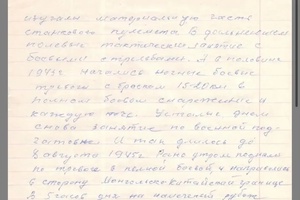 изучали материальную часть
станкового пулемета В дальнейшем
полевые тактические занятие с
боевыми стрельбами. А в половине
1945г начались ночные боевые
тревоги с броском 15-20км в
полном боевом снаряжении и
каждую ночь. Утром днем
снова занятие по военной под
готовке И так длилось до
8 августа 1945г. Рано утром подняли
по тревоге в полной боевой и направили
в сторону Монголо-Китайской границе
В 5 часов дня на